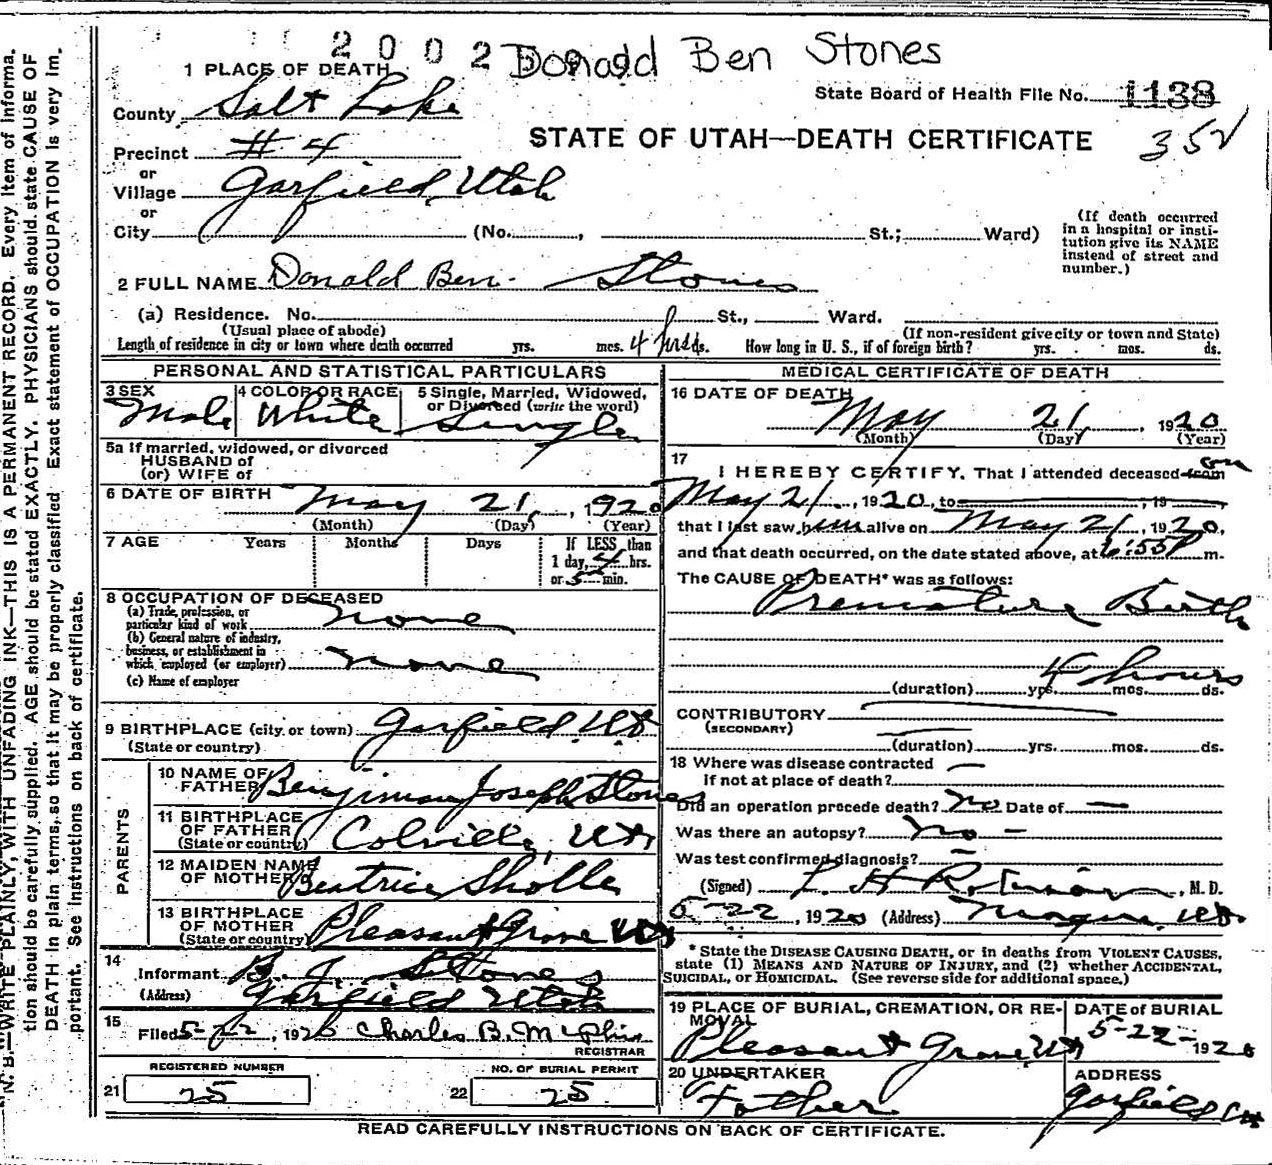 2 0 0 2 Donald Ben Stones
1 PLACE OF DEATH
County Salt Lake
State Board of Health File No. 1138
352
Precinct #4
STATE OF UTAH—DEATH CERTIFICATE
or
Village Garfield, Utah
or
City (No. , St.; Ward)
(If death occurred in a hospital or insti-
tution give its NAME instead of street and number.)
2 FULL NAME Donald Ben Stones
(a) Residence. No. St., Ward.
(Usual place of abode) (If non-resident give city or town and State)
Length of residence in city or town where death occurred yrs. mos. 4 hrs ds. How long in U. S., if of foreign birth? yrs. mos. ds.
PERSONAL AND STATISTICAL PARTICULARS
3 SEX Male
4 COLOR OR RACE White
5 Single, Married, Widowed, or Divorced (write the word) Single
5a If married, widowed, or divorced
HUSBAND of
(or) WIFE of
6 DATE OF BIRTH May 21, 1920
(Month) (Day) (Year)
7 AGE Years Months Days If LESS than
1 day, 4 hrs.
or 5 min.
8 OCCUPATION OF DECEASED
(a) Trade, profession, or
particular kind of work none
(b) General nature of industry,
business, or establishment in
which employed (or employer) none
(c) Name of employer
9 BIRTHPLACE (city or town) Garfield, Ut
(State or country)
PARENTS
10 NAME OF FATHER Benjiman Joseph Stones
11 BIRTHPLACE OF FATHER Colville, Ut
(State or country)
12 MAIDEN NAME OF MOTHER Beatrice Sholle
13 BIRTHPLACE OF MOTHER Pleasant Grove Ut
(State or country)
14
Informant B. J. Stones
(Address) Garfield Utah
15
Filed 5-22, 1920 Charles B. McPhie
REGISTRAR
REGISTERED NUMBER
21 25
NO. OF BURIAL PERMIT
22 25
MEDICAL CERTIFICATE OF DEATH
16 DATE OF DEATH
May 21, 1920
(Month) (Day) (Year)
17
I HEREBY CERTIFY, That I attended deceased from on
May 21, 1920, to , 19
that I last saw him alive on May 21, 1920,
and that death occurred, on the date stated above, at 6:55P m.
The CAUSE OF DEATH* was as follows:
Premature Birth
4 hours
(duration) yrs. mos. ds.
CONTRIBUTORY
(SECONDARY)
(duration) yrs. mos. ds.
18 Where was disease contracted —
If not at place of death?
Did an operation precede death? No Date of —
Was there an autopsy? No —
Was test confirmed diagnosis? —
(Signed) L. H. , M. D.
5-22, 1920 (Address) Magna, Ut.
* State the DISEASE CAUSING DEATH, or in deaths from VIOLENT CAUSES,
state (1) MEANS AND NATURE OF INJURY, and (2) whether ACCIDENTAL,
SUICIDAL, or HOMICIDAL. (See reverse side for additional space.)
19 PLACE OF BURIAL, CREMATION, OR RE-
MOVAL
Pleasant Grove Ut
DATE of BURIAL
5-22-1920
20 UNDERTAKER
Father
ADDRESS
Garfield Ut
READ CAREFULLY INSTRUCTIONS ON BACK OF CERTIFICATE.
N. B.—WRITE PLAINLY, WITH UNFADING INK—THIS IS A PERMANENT RECORD. Every item of informa-
tion should be carefully supplied. AGE should be stated EXACTLY. PHYSICIANS should state CAUSE OF
DEATH in plain terms, so that it may be properly classified. Exact statement of OCCUPATION is very im-
portant. See Instructions on back of certificate.